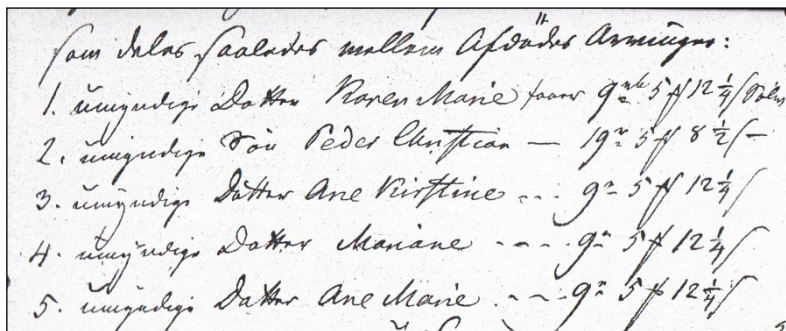 som deles saaledes mellem Afdødes Arvinger:
1. umyndige Datter Karen Marie faaer 9 rb 5 ꝑ 12 1/4 s Sølv
2. umyndige Søn Peder Christian — 19 " 5 ꝑ 8 1/2 s —
3. umyndige Datter Ane Kirstine - - - 9 " 5 ꝑ 12 1/4 s
4. umyndige Datter Mariane - - - - 9 " 5 ꝑ 12 1/4 s
5. umyndige Datter Ane Marie - - - 9 " 5 ꝑ 12 1/4 s